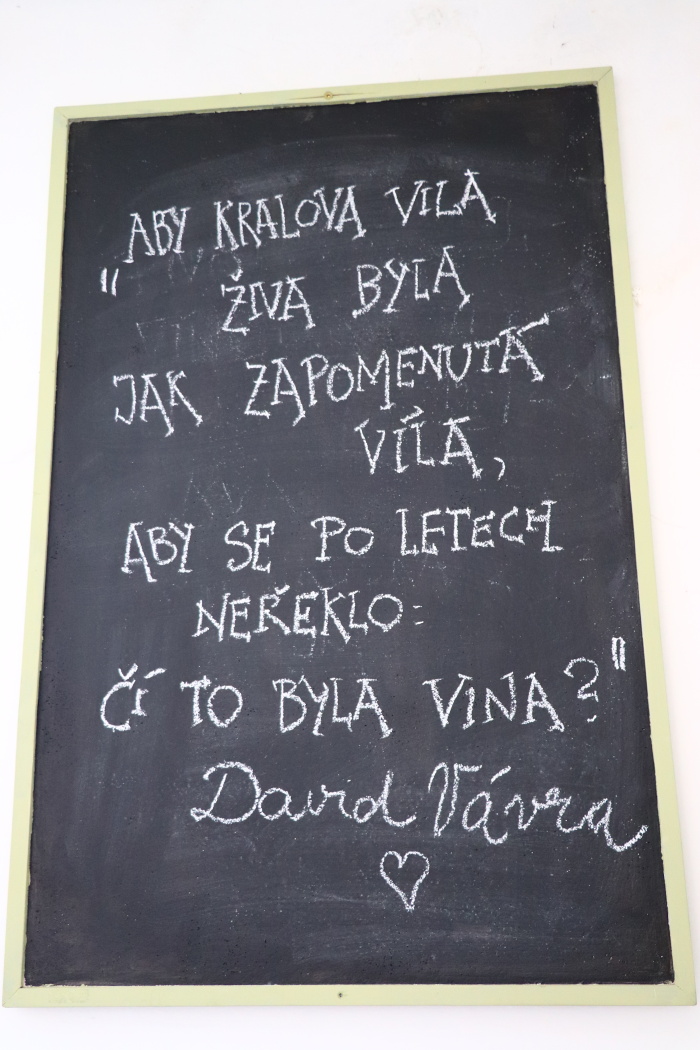 „ABY KRALOVA VILA
ŽIVA BYLA
JAK ZAPOMENUTÁ
VÍLA,
ABY SE PO LETECH
NEŘEKLO:
ČÍ TO BYLA VINA?"
David Vávra
♡